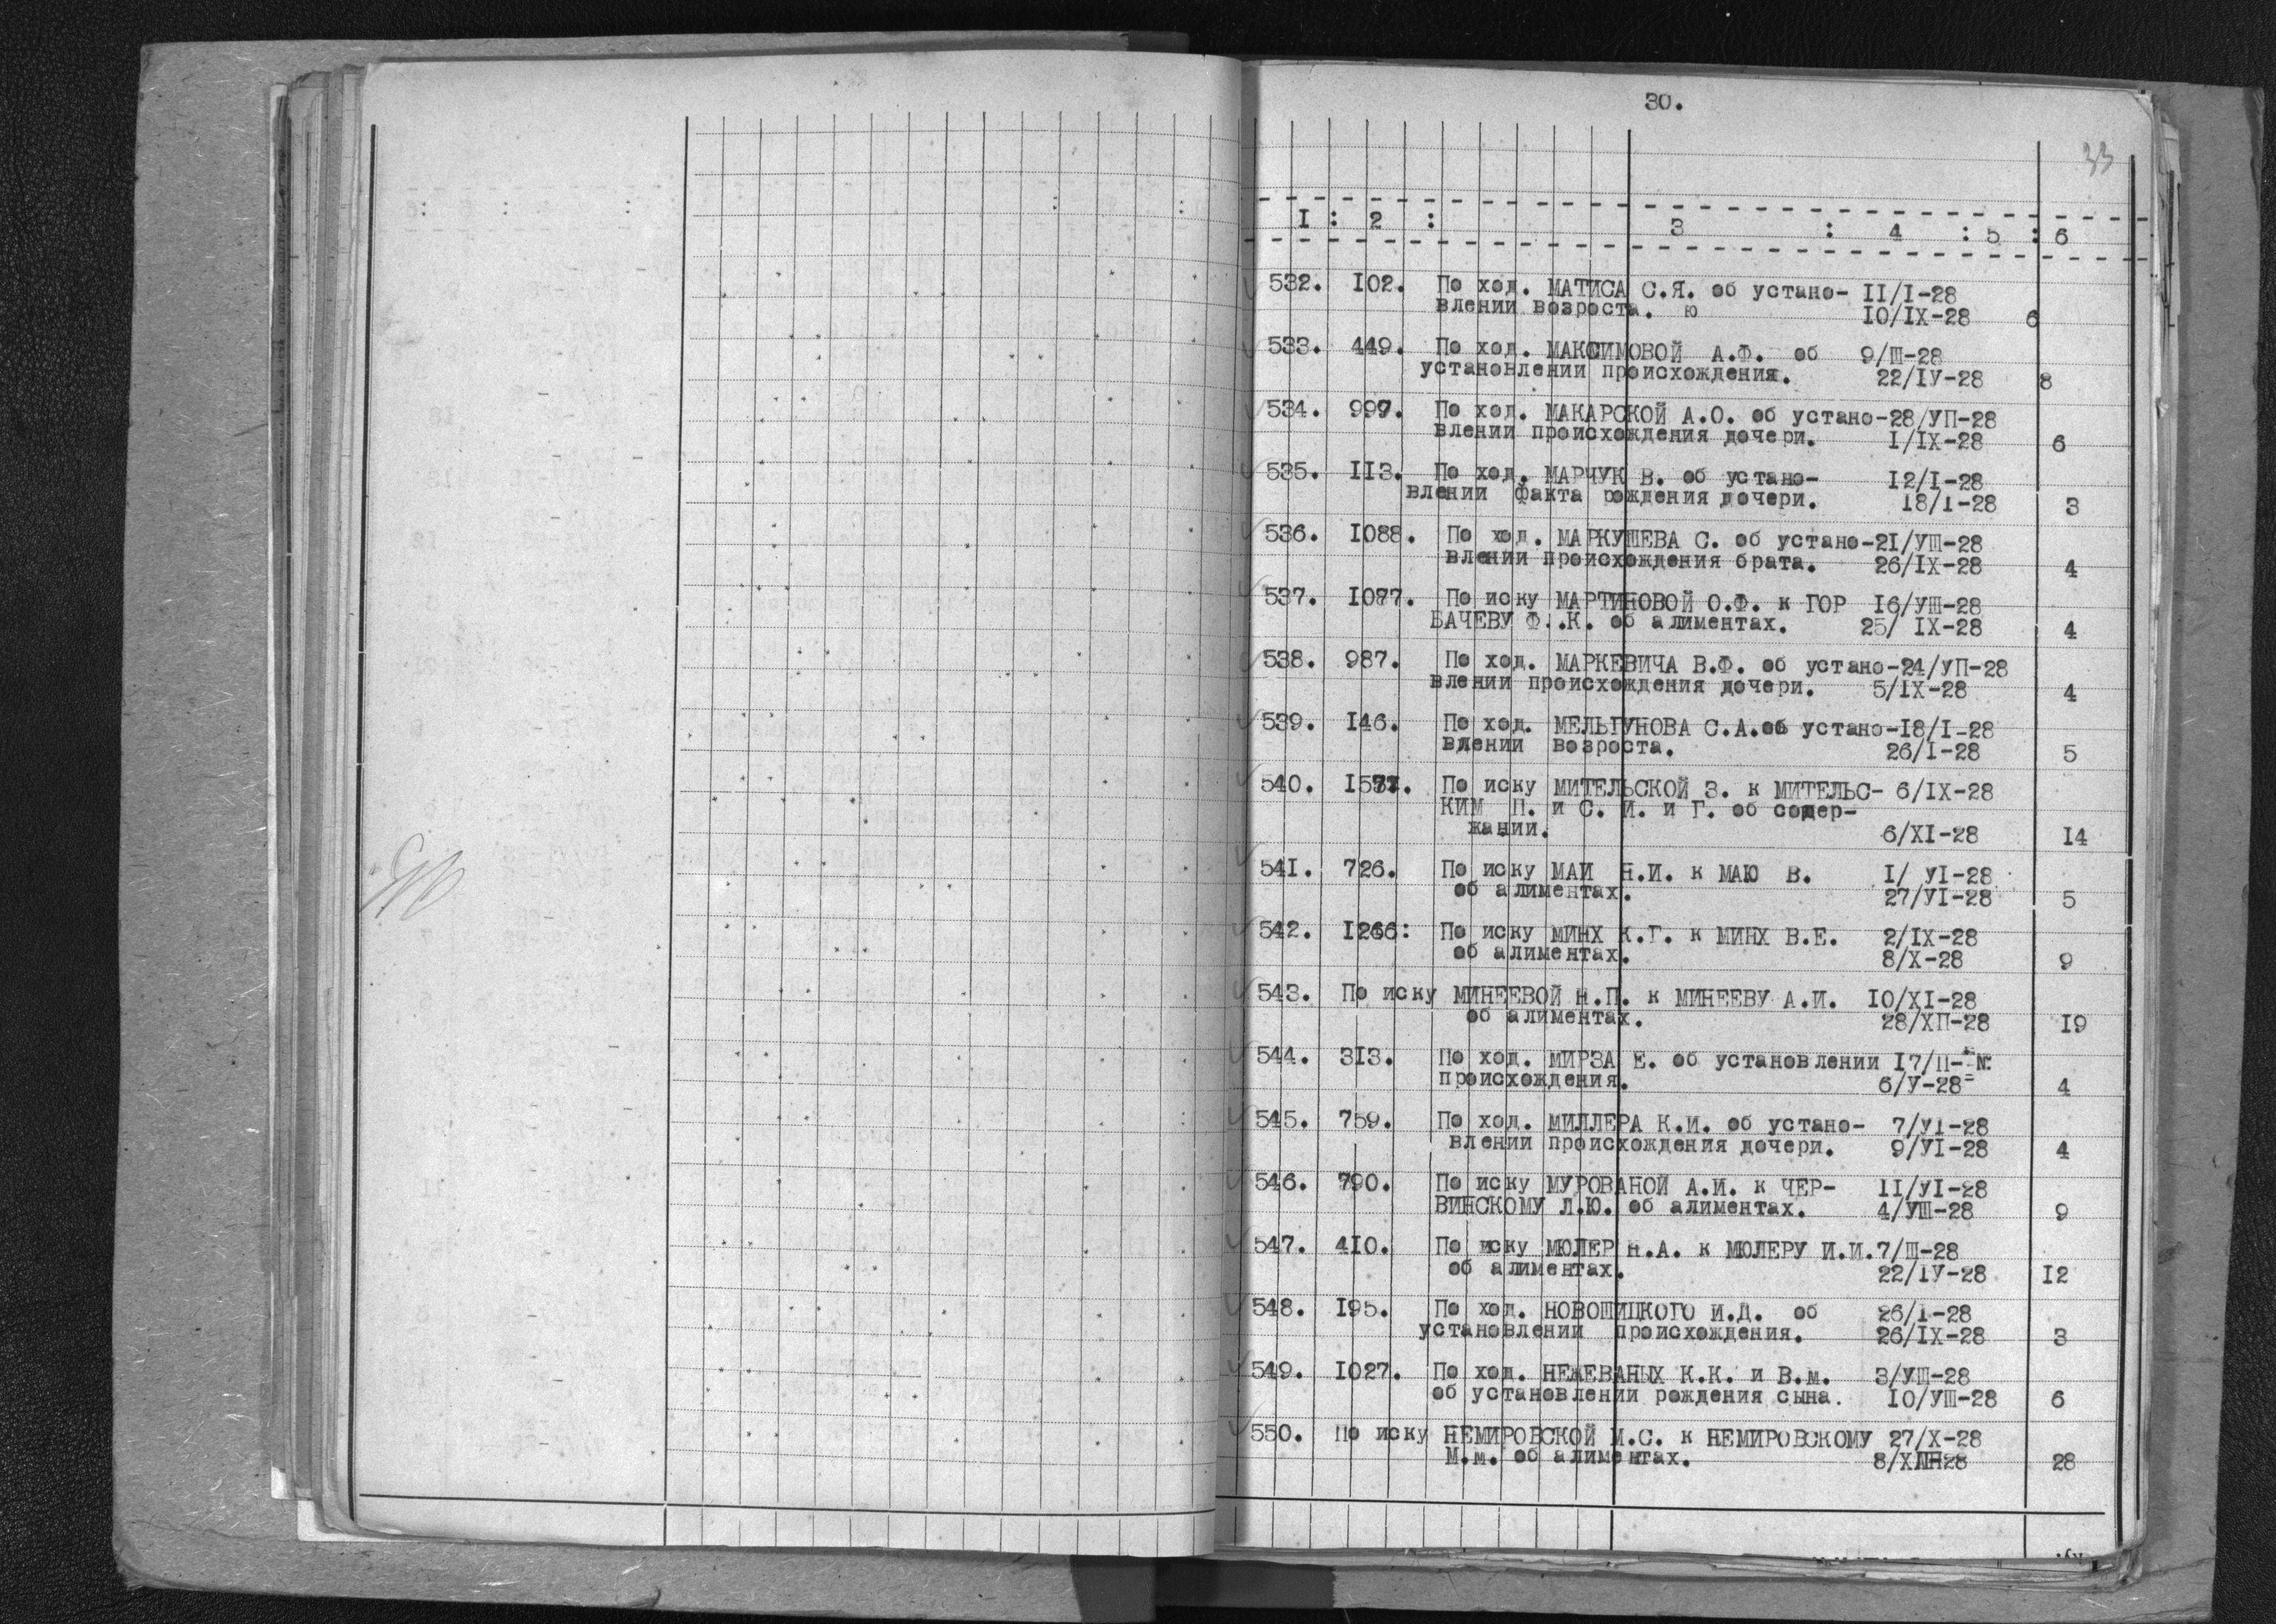 30.
33
I : 2 : 3 : 4 : 5 : 6
532. I02. По ход. МАТИСА С.Я. об устано- II/I-28
влении возроста. ю I0/IX-28 6
533. 449. По ход. МАКСИМОВОЙ А.Ф. об 9/Ш-28
установлении происхождения. 22/IУ-28 8
534. 999. По ход. МАКАРСКОЙ А.О. об устано-28/УП-28
влении происхождения дочери. I/IX-28 6
535. II3. По ход. МАРЧУК В. об устано- I2/I-28
влении факта рождения дочери. I8/I-28 3
536. I088. По ход. МАРКУШЕВА С. об устано-2I/УШ-28
влении происхождения брата. 26/IX-28 4
537. I087. По иску МАРТИНОВОЙ О.Ф. к ГОР I6/УШ-28
БАЧЕВУ Ф.К. об алиментах. 25/ IX-28 4
538. 987. По ход. МАРКЕВИЧА В.Ф. об устано-24/УП-28
влении происхождения дочери. 5/IX-28 4
539. I46. По ход. МЕЛЬГУНОВА С.А.об устано-I8/I-28
влении возроста. 26/I-28 5
540. По иску МИТЕЛЬСКОЙ З. к МИТЕЛЬС- 6/IX-28
КИМ П. и С. И. и Г. об содер-
жании. 6/XI-28 I4
54I. 726. По иску МАИ Н.И. к МАЮ В. I/ УI-28
об алиментах. 27/УI-28 5
542. I266: По иску МИНХ К.Г. к МИНХ В.Е. 2/IX-28
об алиментах. 8/X-28 9
543. По иску МИНЕЕВОЙ Н.П. к МИНЕЕВУ А.И. I0/XI-28
об алиментах. 28/ХП-28 I9
544. 3I3. По ход. МИРЗА Е. об установлении I7/П-
происхождения. 6/У-28 4
545. 759. По ход. МИЛЛЕРА К.И. об устано- 7/УI-28
влении происхождения дочери. 9/УI-28 4
546. 790. По иску МУРОВАНОЙ А.И. к ЧЕР- II/УI-28
ВИНСКОМУ Л.Ю. об алиментах. 4/УШ-28 9
547. 4I0. По иску МЮЛЕР Н.А. к МЮЛЕРУ И.И.7/Ш-28
об алиментах. 22/IУ-28 I2
548. I95. По ход. НОВОШИЦКОГО И.Д. об 26/I-28
установлении происхождения. 26/IX-28 3
549. I027. По ход. НЕЖЕВАНЫХ К.К. и В.м. 3/УШ-28
об установлении рождения сына. I0/УШ-28 6
550. По иску НЕМИРОВСКОЙ М.С. к НЕМИРОВСКОМУ 27/X-28
М.м. об алиментах. 28